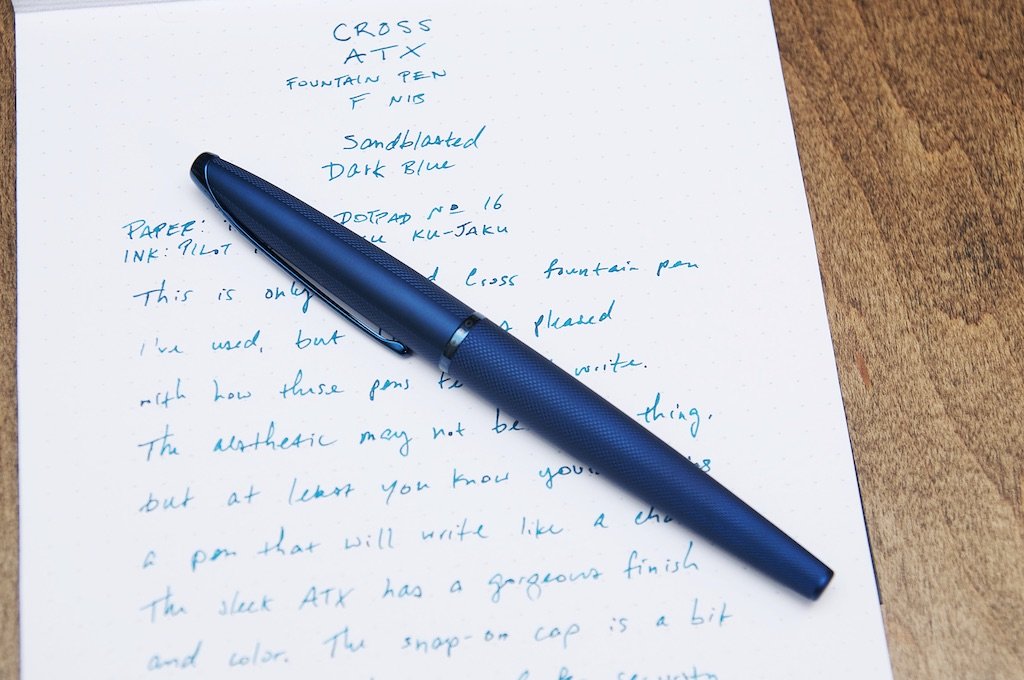 CROSS
ATX
FOUNTAIN PEN
F NIB
Sandblasted
Dark Blue
PAPER: DOTPAD No 16
INK: PILOT KU-JAKU
This is only Cross fountain pen
I've used, but pleased
with how these pens write.
The aesthetic may not be thing,
but at least you know
a pen that will write like a
The sleek ATX has a gorgeous finish
and color. The snap-on cap is a bit
security